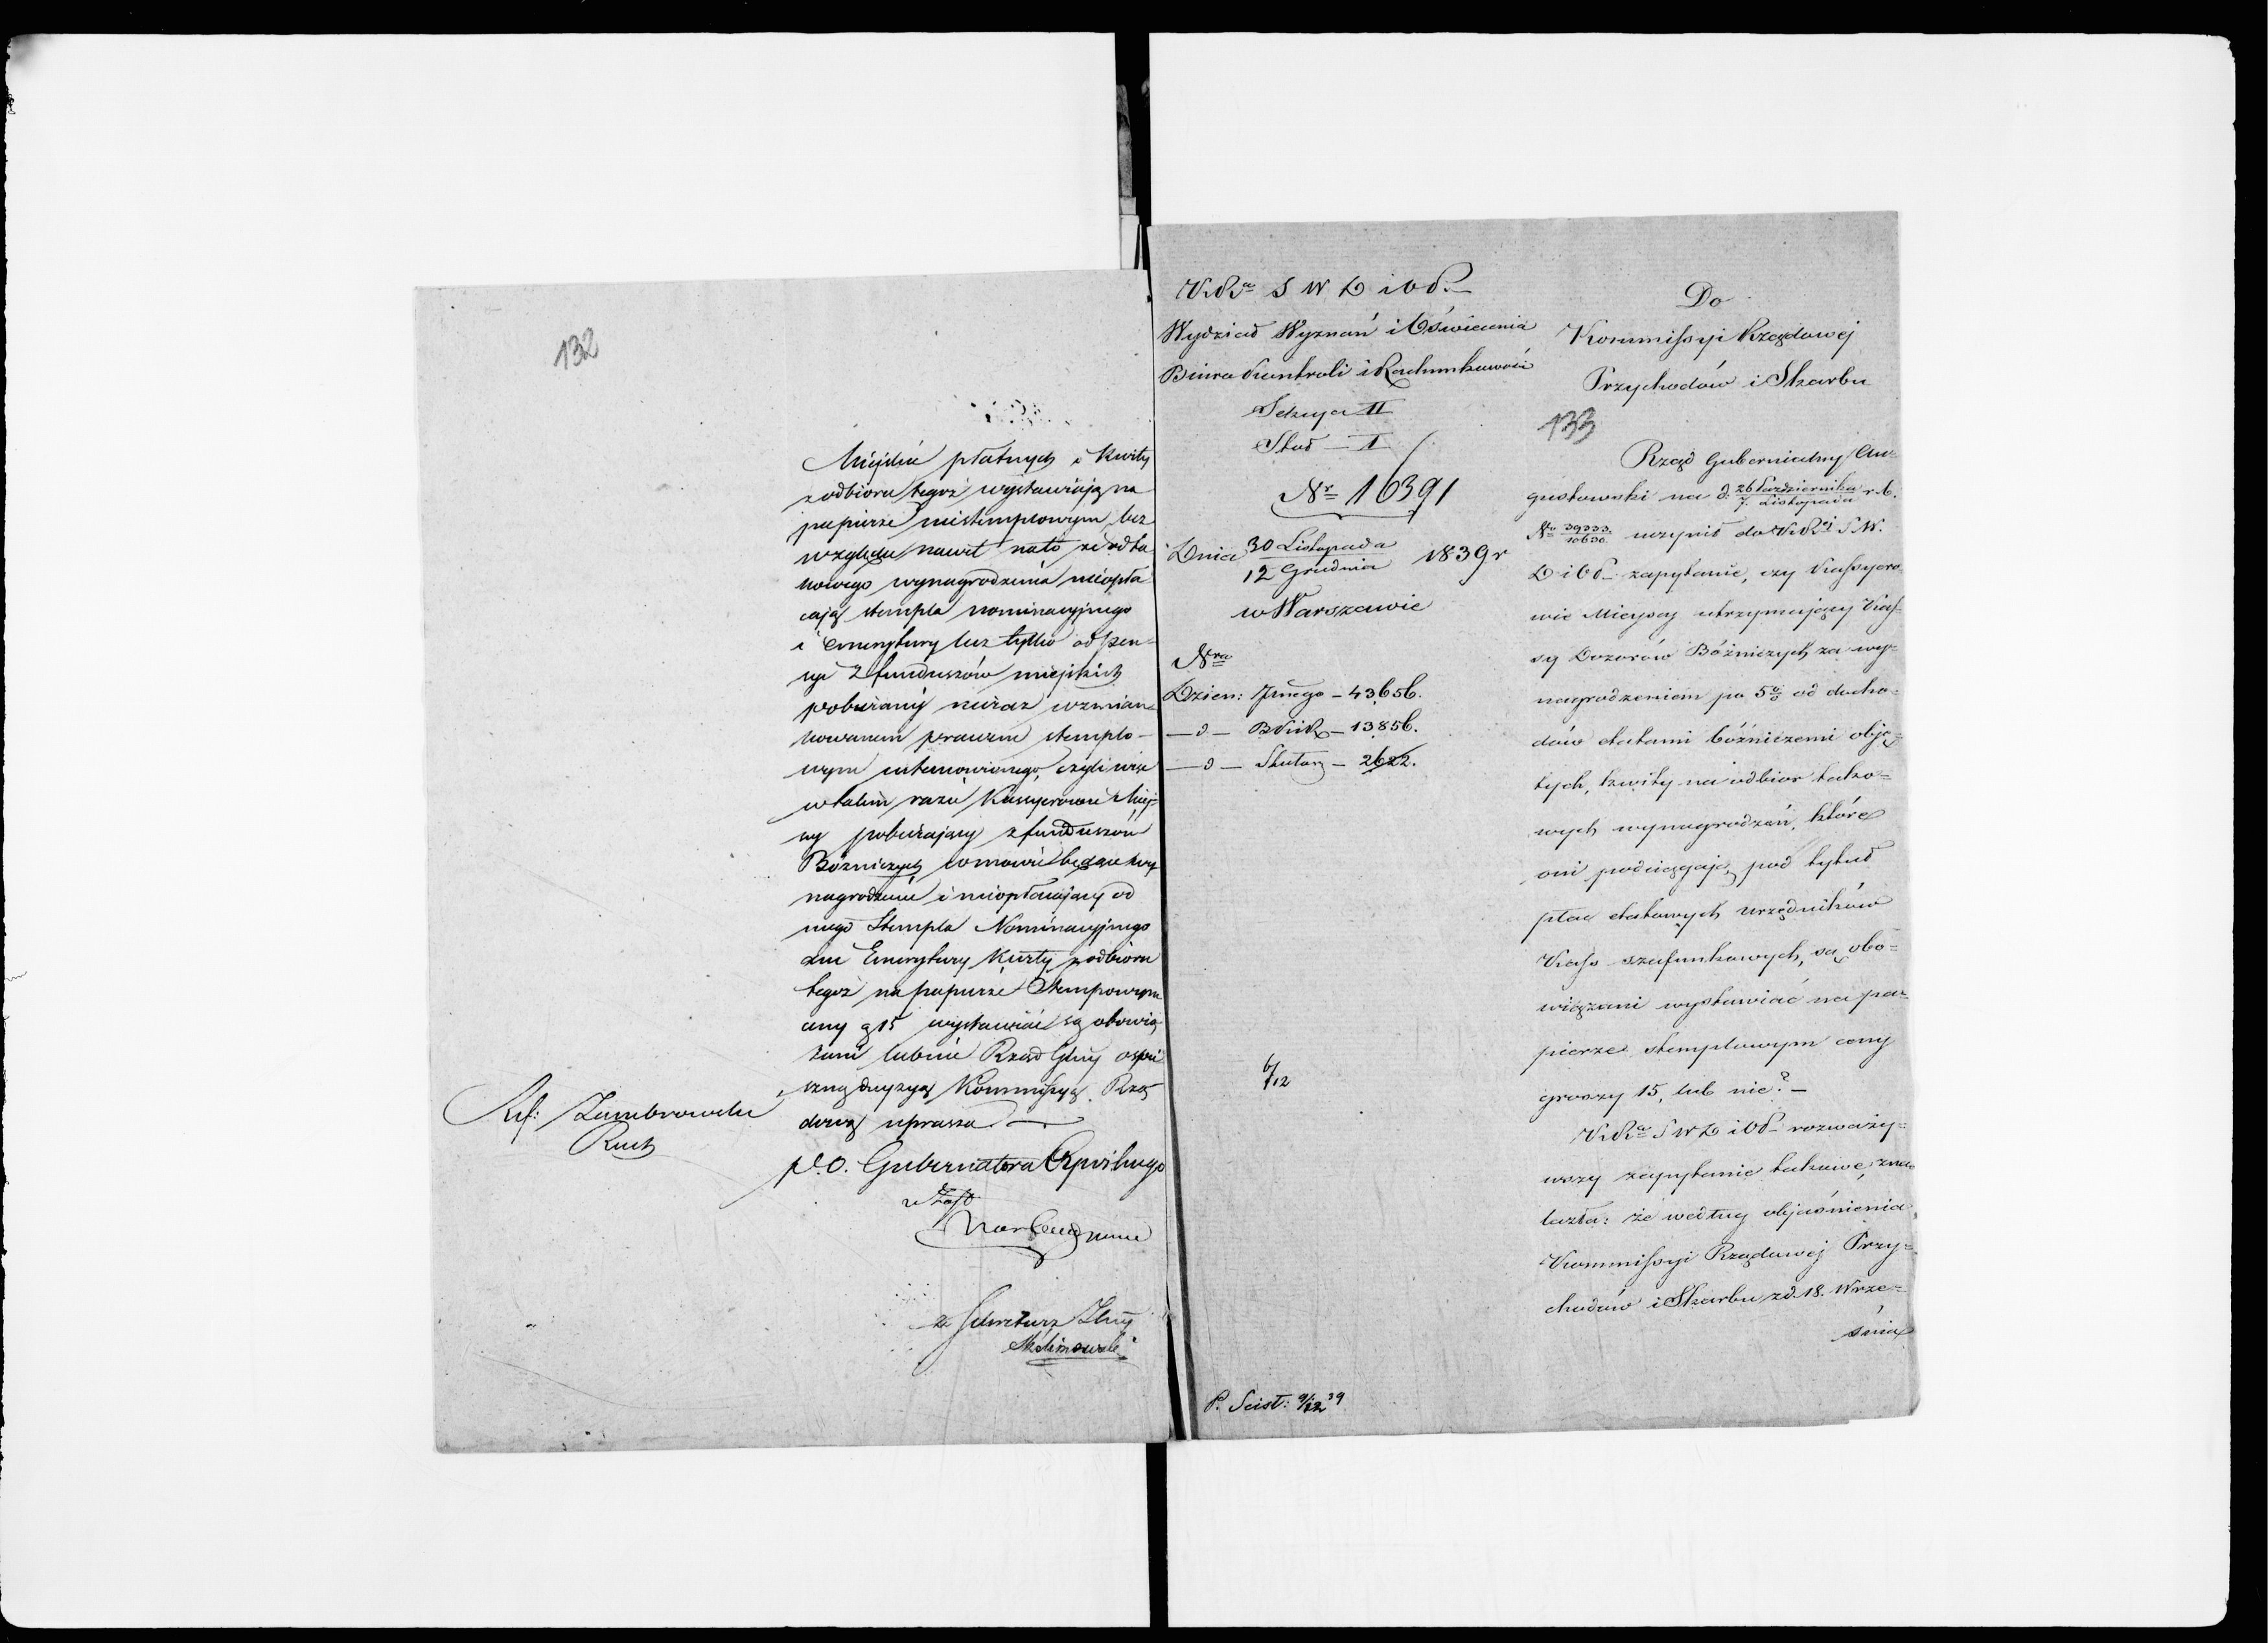 132
Miejskie płatnych i kwity
z odbioru tegoż wystawiają na
papierze niestemplowym bez
względu nawet na to że od ta
kowego wynagrodzenia nieopła
cają stempla nominacyjnego
i emerytury lecz tylko od pen-
syi z funduszów miejskich
pobieranej nieraz wzmian
kowanem prawem stemplo-
wym ustanowionego, czyli więc
w takim razie Kassyerowie Miej-
scy pobierający z funduszów
Bóżniczych w mowie będące wy
nagrodzenie i nieopłacający od
niego Stempla Nominacyjnego
ani Emerytury Kwity z odbioru
tegoż na papierze Stemplowym
ceny g 15 wystawiać są obowią
zani lub nie Rząd Gbny o spie
szną decyzyą Kommissyą Rzą
dową uprasza.
p.o. Gubernatora Cywilnego
w Zast
Ref: Zambrowski
Ruch
za Sekretarz Jlny
Malinowski
K.R.a S W D i O P.
Wydział Wyznań i Oświecenia
Biuro Kontroli i Rachunkowości
Sekcya II
Stoł — I
Nr 16391
Dnia 30 Listopada / 12 Grudnia 1839 r
w Warszawie
Nra
Dzien: Jlnego - 43656.
— d — BKiR - 13856.
— d — - 2622.
6/12
P. Seist: 9/12 39
Do
Kommissyi Rządowej
Przychodów i Skarbu
133
Rząd Gubernialny Au-
gustowski na d. 26 Października / 7. Listopada r. b.
No 39333 / 10630 uczynił do K.R.i S.W.
D i O P zapytanie, czy Kassyero-
wie Miejscy utrzymujący Kas-
sy Dozorów Bóżniczych za wy-
nagrodzeniem po 5% od docho-
dów etatami bóżniczemi obję-
tych, kwity na odbior tako-
wych wynagrodzeń, które
oni podciągają pod tytuł
płac etatowych urzędników
Kass szafunkowych, są obo-
wiązani wystawiać na pa-
pierze stemplowym ceny
groszy 15, lub nie? —
K.R.a S W D i O P rozważy-
wszy zapytanie takowe, zna-
lazła: że według objaśnienia
Kommissyi Rządowej Przy-
chodów i Skarbu z d. 18. Wrze-
śnia